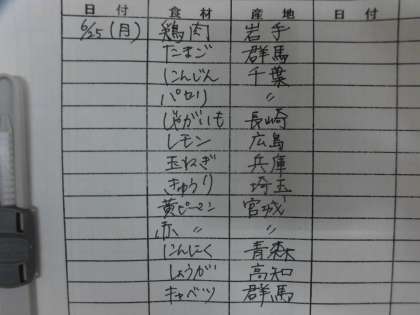 日付 食材 産地 日付
6/25(月) 鶏肉 岩手
たまご 群馬
にんじん 千葉
パセリ 〃
じゃがいも 長崎
レモン 広島
玉ねぎ 兵庫
きゅうり 埼玉
黄ピーマン 宮城
赤 〃 〃
にんにく 青森
しょうが 高知
キャベツ 群馬